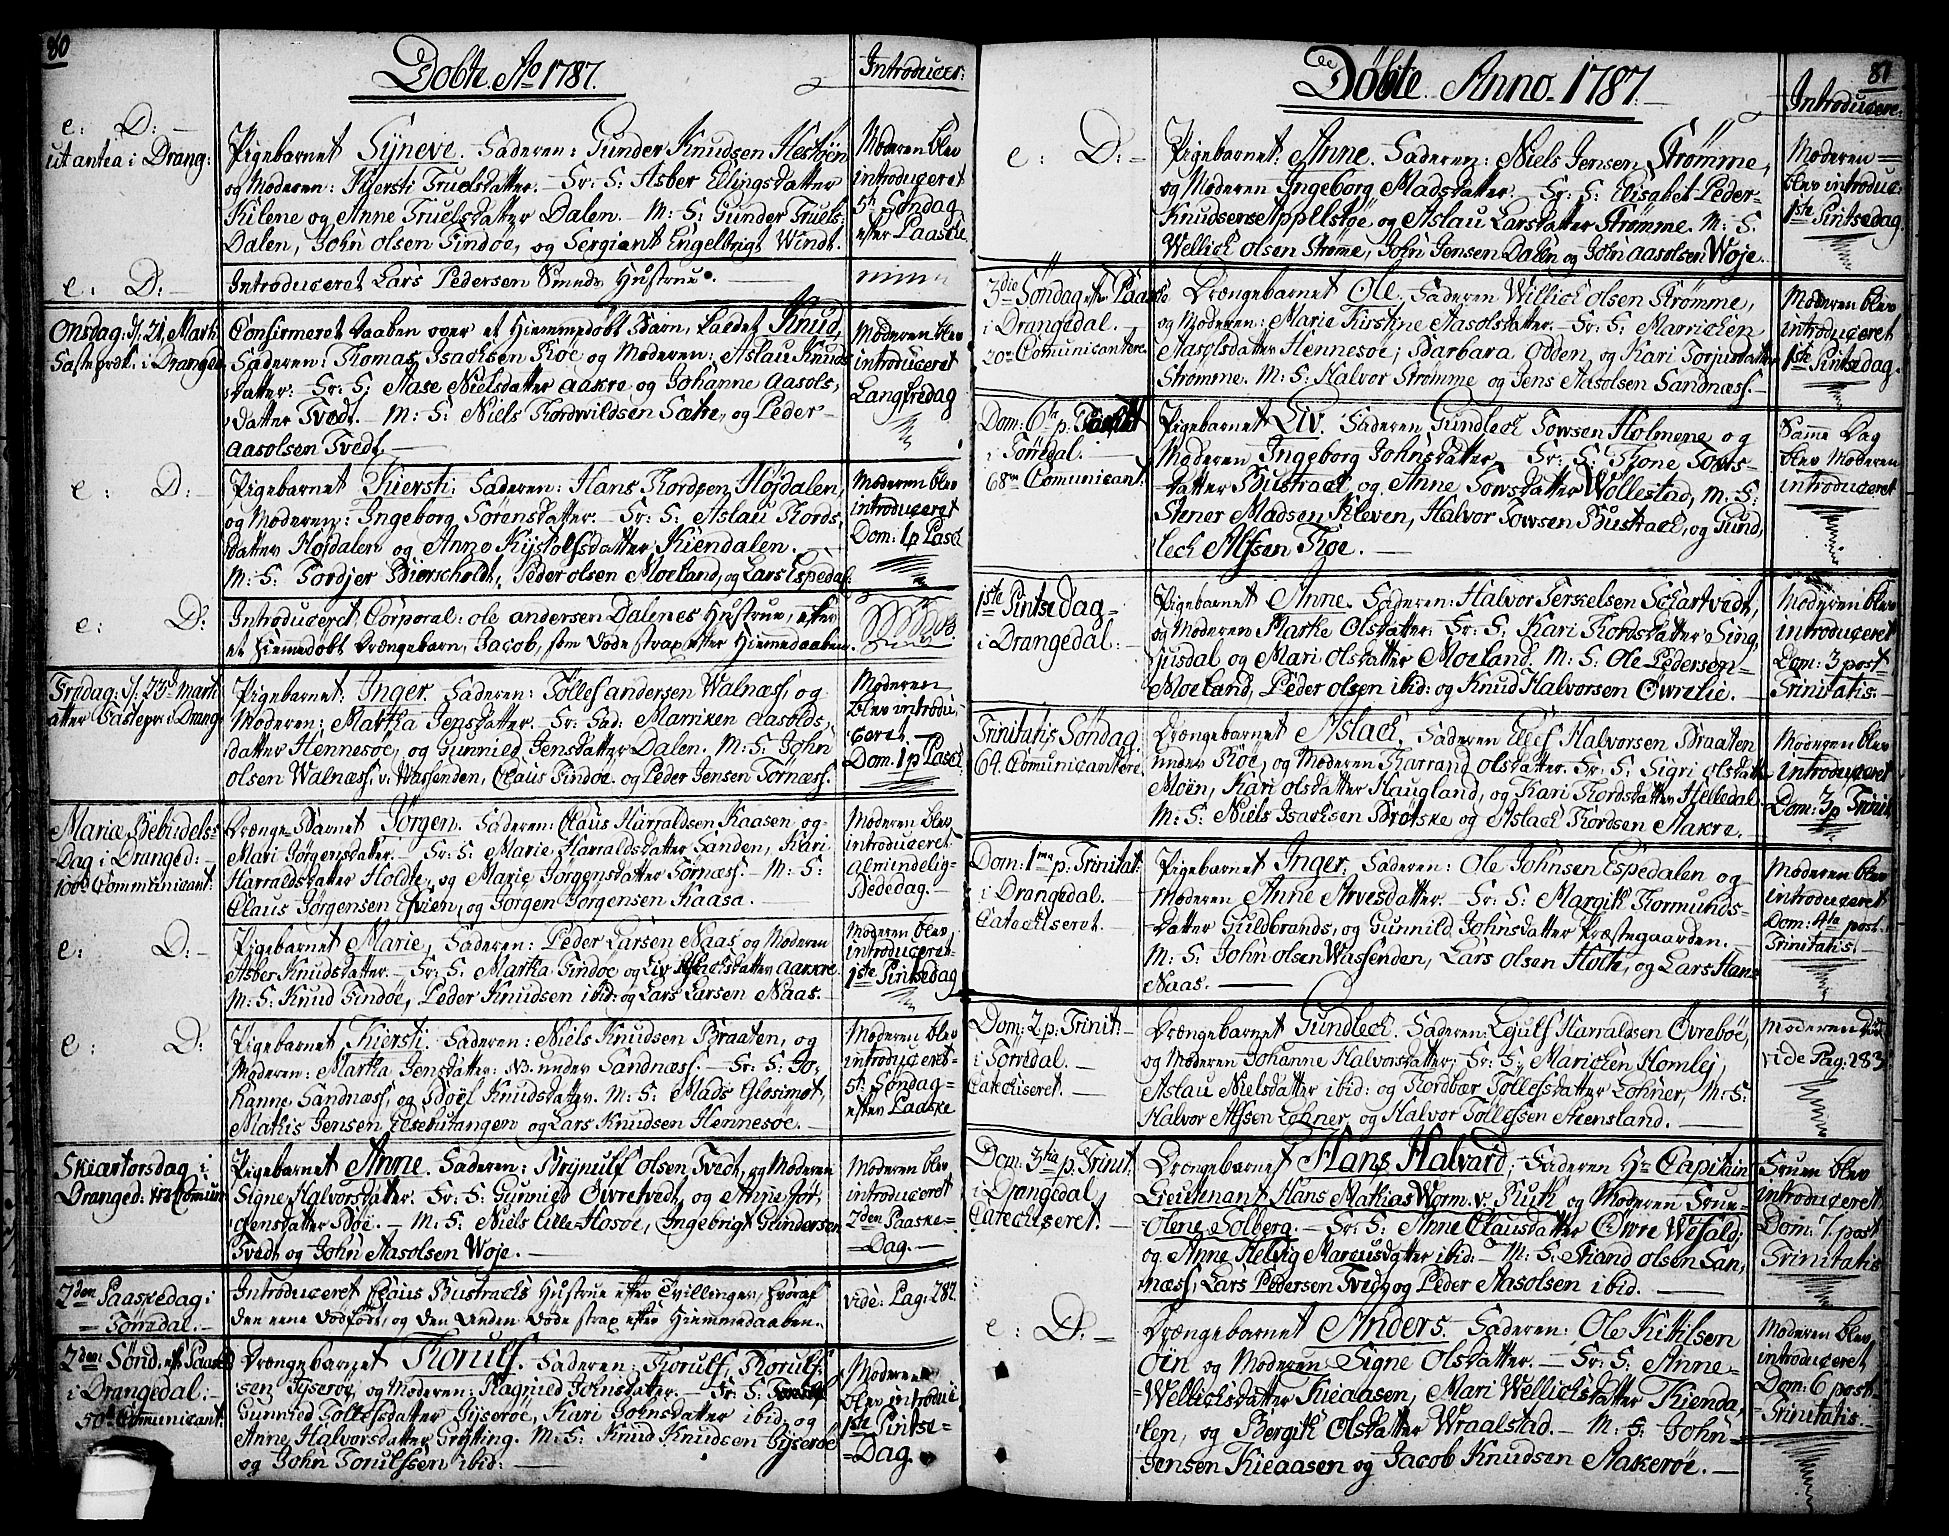 80
Döbte Ao 1787.
Introducer:
e: D: —
ut antea i Drang:
Pigebarnet Syneve. Faderen: Gunder Knudsen Hestøen
og Moderen: Kiersti Truelsdatter. — Fr: S: Asber Ellingsdatter
Kilene og Anne Truelsdatter Dalen. — M: S: Gunder Truels:
Dalen, John olsen Tindøe, og Sergiant Engelbrigt Windt.
Moderen blev
introduceret
5te Søndag
efter Paaske
e: D: —
Introduceret Lars Pedersen Smeds Hustrue.
Onsdag: d: 21 Martii
Fastepræk: i Drangen
Confirmeret Daaben over et Hiemmedøbt Barn, kaldet Knud,
Faderen: Thomas Isachsen Roe og Moderen: Aslau Knuds
datter: Fr: S: Aase Nielsdatter Aakre og Johanne Aasols,
datter Tvedt. — M: S: Niels Tordvildsen Sætre, og Peder
Aasolsen Tvedt. —
Moderen blev
introduceret
Langfredag
e: D: —
Pigebarnet Kiersti: Faderen: Hans Tordsen Højdalen,
og Moderen: Ingeborg Sørensdatter. — Fr: S: Aslau Tords
datter Højdalen og Anne Kystolfsdatter Kiendalen.
M: S: Tordjer Bierscholdt, Peder olsen Moeland, og Lars Espedal:
Moderen blev
introduceret
Dom: 1 p Pasch
e: D:
Introduceret Corporal: ole andersen Dalenes Hustrue, efter
et Hiemedøbt Drængebarn, Jacob, som døde strax efter Hiemedaaben.
Fredag: d: 23de Martii
atter Fastepr: i Drang:
Pigebarnet: Inger. Faderen: Tollef andersen Walnæss, og
Moderen: Martha Jensdatter. Fr: Fad: Marriken Aasolds,
datter Hennesøe, og Gunnild Jensdatter Dalen. M: S: John
olsen Walnæss. v. Wassenden, Claus Tindøe og Peder Jensen Tørnæss.
Moderen
blev introdu,
ceret. —
Dom: 1 p Pasch:
Mariæ Bebudels:
Dag i Dranged: —
100de Communicant:
Drænge-Barnet Jørgen. Faderen: Claus Harraldsen Kaasen og
Mari Jørgensdatter. — Fr: S: Marie Harraldsdatter Sanden, Kari
Harraldsdatter Holdte, og Marie Jørgensdatter Tørnæss. — M: S:
Claus Jørgensen Qvien, og Jørgen Jørgensen Kaasa.
Moderen blev
introduceret
Almindelig-
Bededag. —
e: D: —
Pigebarnet Marie, Faderen: Peder Larsen Naas og Moderen
Asber Knudsdatter. — Fr: S: Martha Tindøe og Liv datter Aakre
M: S: Knud Tindøe, Peder Knudsen ibid: og Lars Larsen Naas. —
Moderen blev
introduceret
1ste Pintsedag
e: D:
Pigebarnet Kiersti. Faderen: Niels Knudsen Braaten, og
Moderen: Martha Jensdatter: NB. under Sandnæss. — Fr: S: Jo,
hanne Sandnæss, og Bøel Knudsdatter. M: S: Mads Glosimot,
Mathis Jensen Elsebutangen og Lars Knudsen Hennesøe. —
Moderen blev
introduceret
5te Søndag
efter Paaske
Skiærtorsdag i
Dranged: 113 Comun
Pigebarnet Anne. Faderen: Brynulf olsen Tvedt, og Moderen
Signe Halvorsdatter. Fr: S: Gunnied Øvretvedt, og Anne Jør,
gensdatter Bøe. — M: S: Niels Lille-Hosøe, Ingebrigt Gundersen
Tvedt og John Aasolsen Woje. —
Moderen blev
introduceret
2den Paaske-
Dag. —
2den Paaskedag i
Tørredal. —
Introduceret Claus Bustrachs Hustrue efter Tvillinger, hvoraf
den eene dødfødt, og den anden døde strax efter Hiemmedaaben.
vide: Pag: 282.
2den Sønd: eft Paaske
i Drangedal. —
50de Comunicant:
Drængebarnet Thorulf. Faderen: Thorulf Thorulf,
sen Gyserøe, og Moderen: Ragnild Johnsdatter. — Fr: S:
Gunnied Tollefsdatter Gyserøe, Kari Johnsdatter ibid, og
Anne Halvorsdatter Grøsting. M: S: Knud Knudsen Gyserøe
og John Torulfsen ibid. —
Moderen
blev introdu,
1ste Pintse-
Dag.
81
Döbte Anno 1787.
Introducere:
e: D: —
Pigebarnet: Anne. Faderen: Niels Jensen Strømme,
og Moderen Ingeborg Madsdatter. — Fr: S: Elisabet Peder-
Knudsens Appelstøe, og Aslau Larsdatter Strømme. M: S:
Wellich olsen Strøme, John Jensen Dalen og John Aasolsen Woje.
Moderen
blev introduc:
1ste Pintsedag.
3die Søndag efter Paaske
i Drangedal.
20de Comunicantere
Drængebarnet Ole, Faderen Willich olsen Strømme,
og Moderen: Marie Kirstine Aasolsdatter. — Fr: S: Marrichen
Aasolsdatter Hennesøe; Barbara Odden, og Kari Torjusdatter
Strømme. M: S: Halvor Strømme og Jens Aasolsen Sandnæss.
Moderen blev
introduceret
1ste Pintsedag.
Dom: 6ta p:
i Tørredal.
68de Comunicant.
Pigebarnet Liv. Faderen Gundlech Towsen Holmene og
Moderen Ingeborg Johnsdatter, Fr: S: Thone Tows-
datter Bustrach, og Anne Towsdatter Wollestad, M: S:
Stener Madsen Kleven, Halvor Towsen Bustrach, og Gund,
lech Alfsen Roe. —
Samme Dag
blev Moderen
introduceret
1ste Pintsedag
i Drangedal: —
Pigebarnet Anne. Faderen: Halvor Terkelsen Schartvedt,
og Moderen Marke Olsdatter: Fr: S: Kari Tordsdatter Sing,
jusdal og Mari olsdatter Moeland. M: S: Ole Pedersen
Moeland, Peder olsen ibid: og Knud Halvorsen Øvrelie. —
Moderen blev
introduceret
Dom: 3 post
Trinitatis. —
Trinitatis Søndag
64. Comunicantere
Drængebarnet Aslach. Faderen Ellef Halvorsen Braaten
under Roe, og Moderen Tarrand olsdatter. Fr: S: Sigri olsdatter
Moin, Kari olsdatter Haugland, og Kari Tordsdatter Helledal
M: S: Niels Isachsen Brøtske og Aslach Tordsen Aakre. —
Moderen blev
introduceret
Dom: 3 p Trinit.
Dom: 1ma p. Trinitat:
i Drangedal. —
Catechiseret. —
Pigebarnet Inger. Faderen: Ole Johnsen Espedalen og
Moderen Anne Arvesdatter. — Fr: S: Margith Tormunds-
datter Guldbrands, og Gunnild Johnsdatter Præstegaarden. —
M: S: John olsen Wassenden, Lars olsen Holte, og Lars Hans
Naas. —
Moderen blev
introduceret
Dom: 4ta post.
Trinitatis.
Dom: 2 p. Trinit: —
i Tørredal. —
Catechiseret. —
Drængebarnet Gundlech. Faderen: Lejulf Harraldsen Øvrebøe,
og Moderen Johanne Halvorsdatter. Fr: S: Marichen Homlej,
Aslau Nielsdatter ibid: og Tordbær Tollefsdatter Lohner, M: S:
Halvor Alfsen Lohner, og Halvor Tollefsen Steensland. —
Moderen død
vide Pag: 283
Dom: 3tia p. Trinit.
i Drangedal,
Catechiseret. —
Drængebarnet Hans Halvard, Faderen Hr Capitain
Lieutenant Hans Mathias Worm v. Ruth og Moderen Frue
Olene Solberg. — Fr: S: Anne Clausdatter Øwre Wefald:
og Anne Helvig Marcusdatter ibid: — M: S: Strand olsen San,
næss, Lars Pedersen Tvedt og Peder Aasolsen ibid. —
Fruen blev
introduceret
Dom: 7. post
Trinitatis
e: D: —
Drængebarnet Anders. Faderen: Ole Kittilsen
Oin og Moderen Signe Olsdatter. — Fr: S: Anne
Wellichsdatter Kieaasen, Mari Wellichsdatter Kienda,
len, og Bergith Olsdatter Wraalstad. — M: S: John
Jensen Kieaasen og Jacob Knudsen Aakerøe. —
Moderen blev
introduceret
Dom: 6 post
Trinitatis.